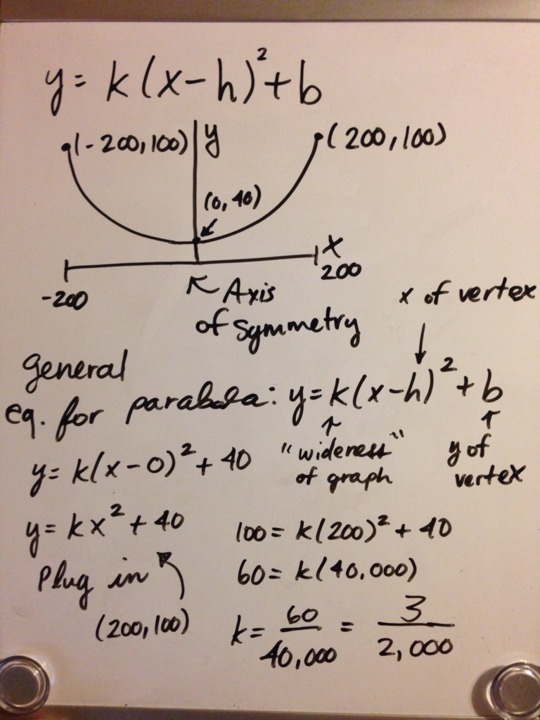 y = k(x-h)²+b
(-200,100) y (200,100)
(0,40)
x
-200 200
Axis
of symmetry
x of vertex
general
eq. for parabola: y=k(x-h)²+b
"wideness"
of graph
y of
vertex
y=k(x-0)²+40
y=kx²+40
Plug in
(200,100)
100=k(200)²+40
60=k(40,000)
k= 60/40,000 = 3/2,000